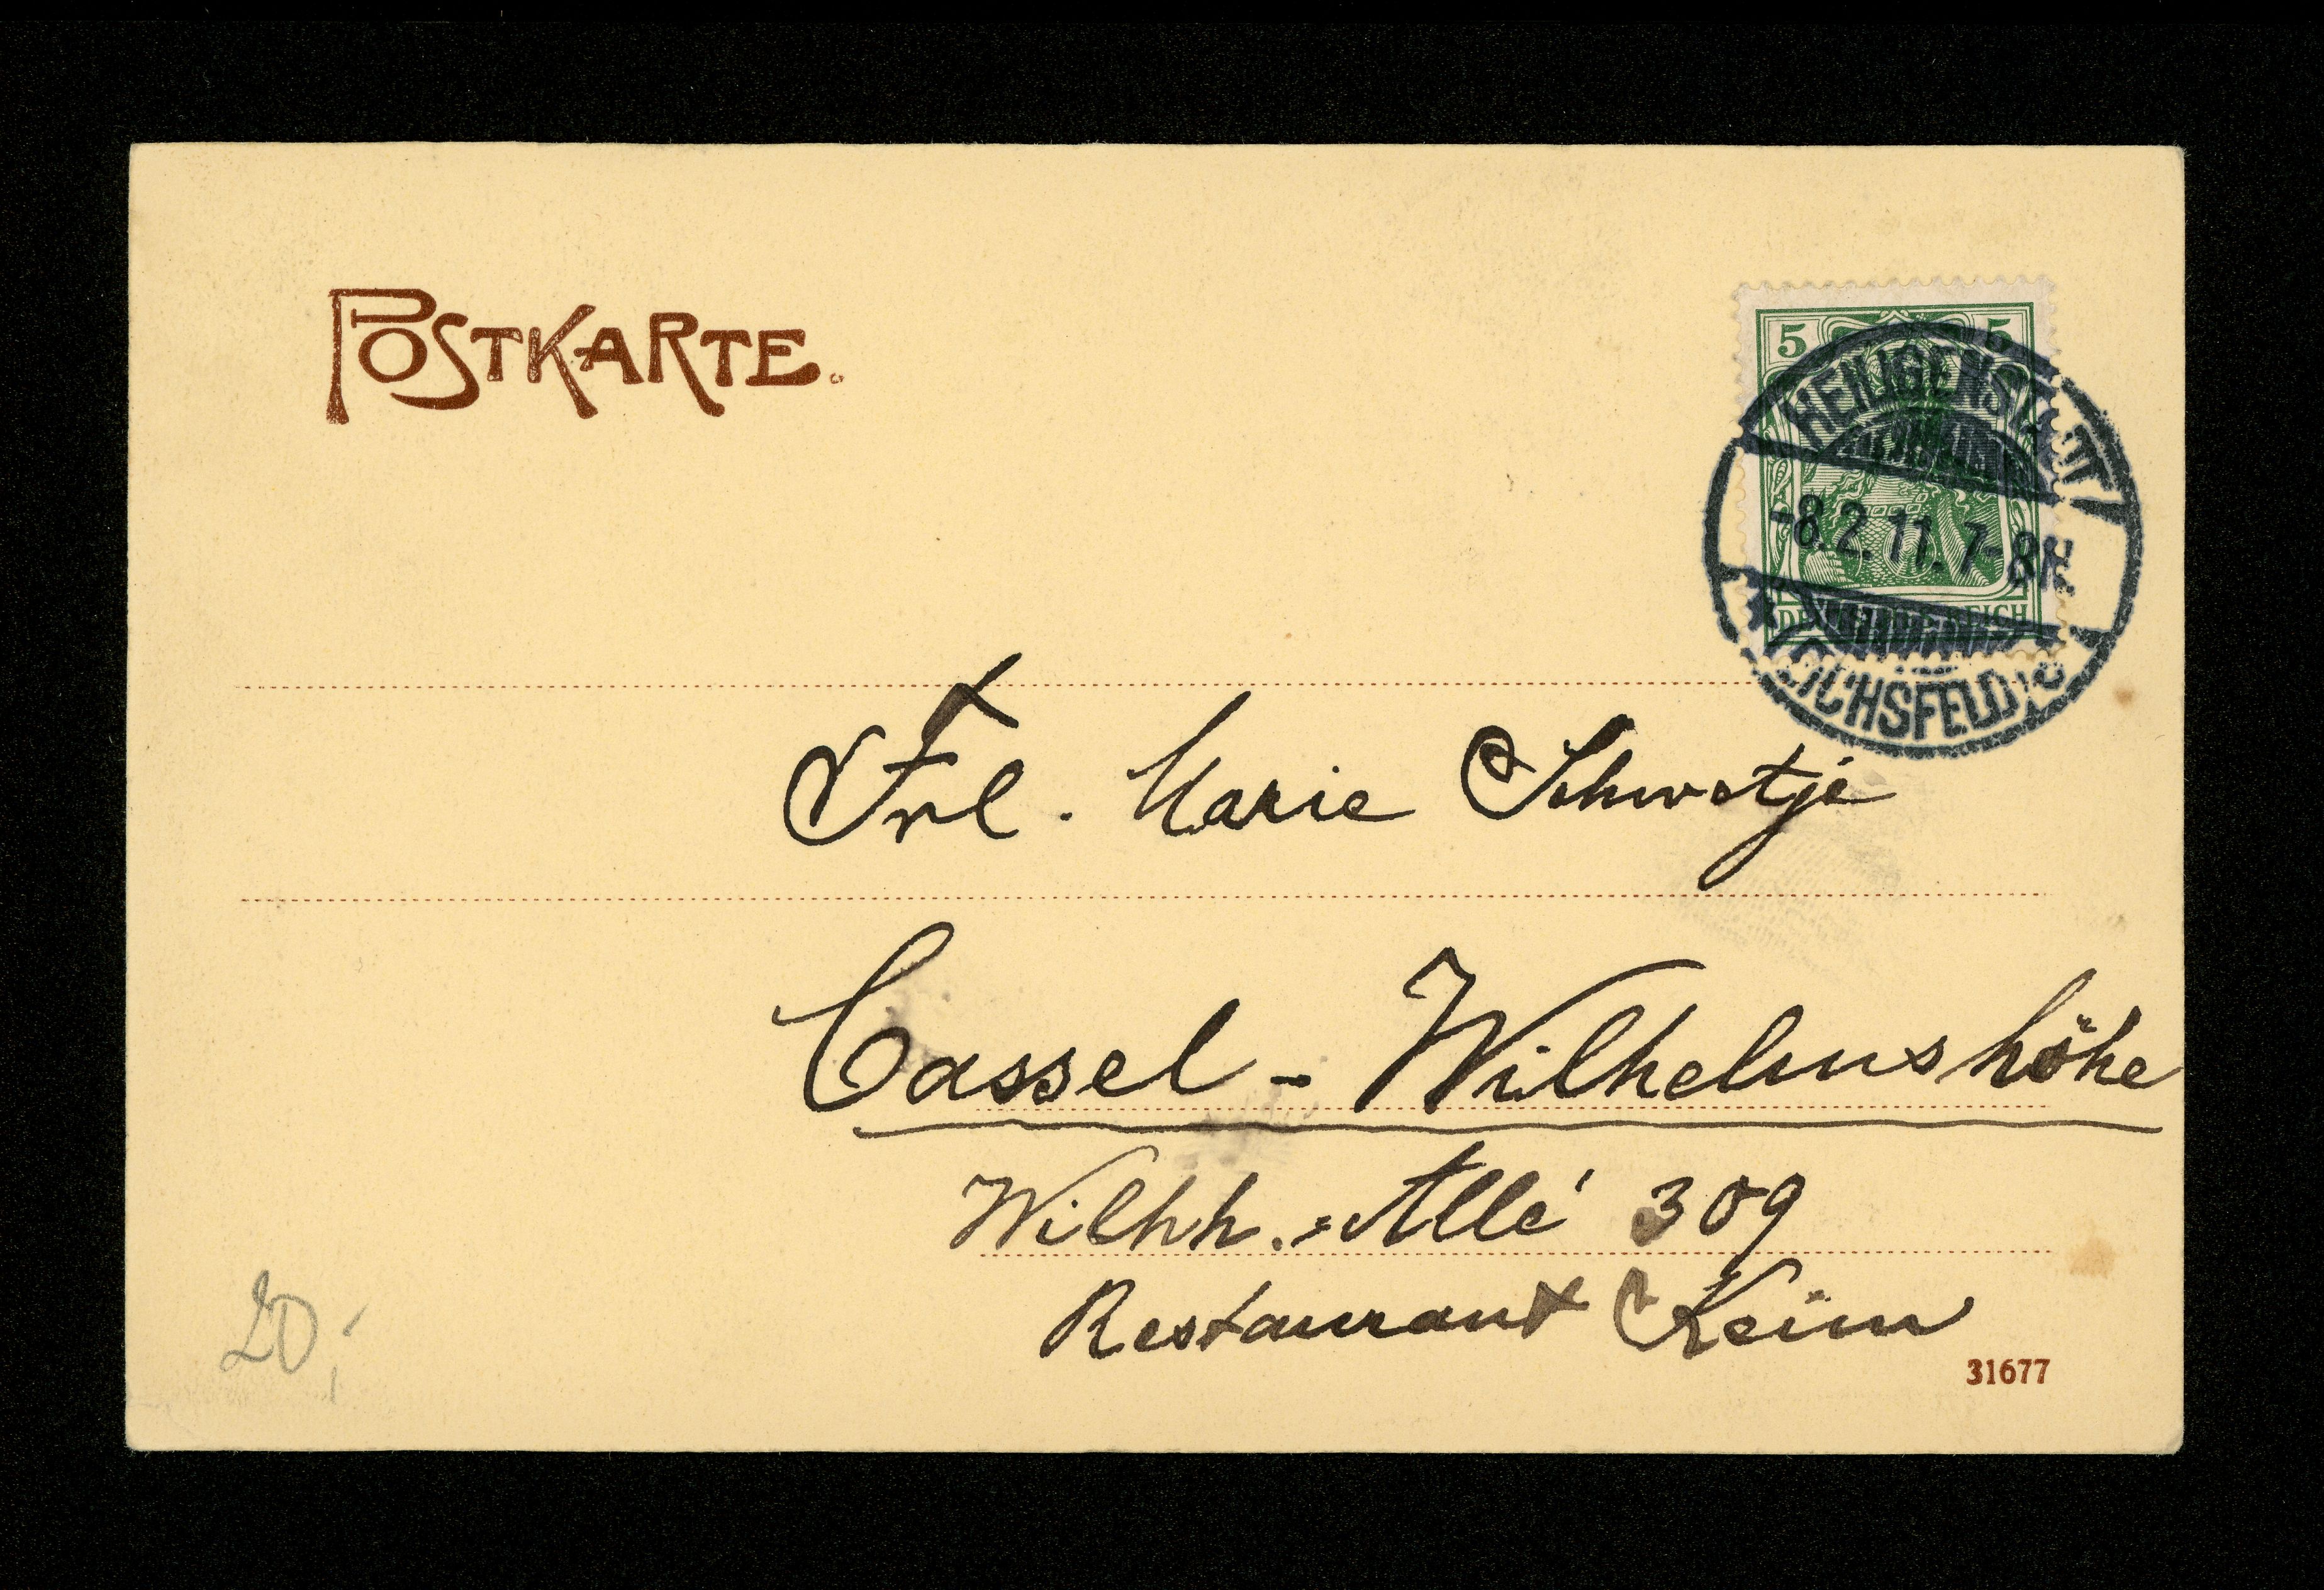 POSTKARTE.
5 5
HEILIGENSTADT
-8.2.11.7-8N.
(EICHSFELD) c
DEUTSCHES REICH
Frl. Marie Schwetje
Cassel - Wilhelmshöhe
Wilhh.=Allé 309
Restaurant Keim
31677
20,-